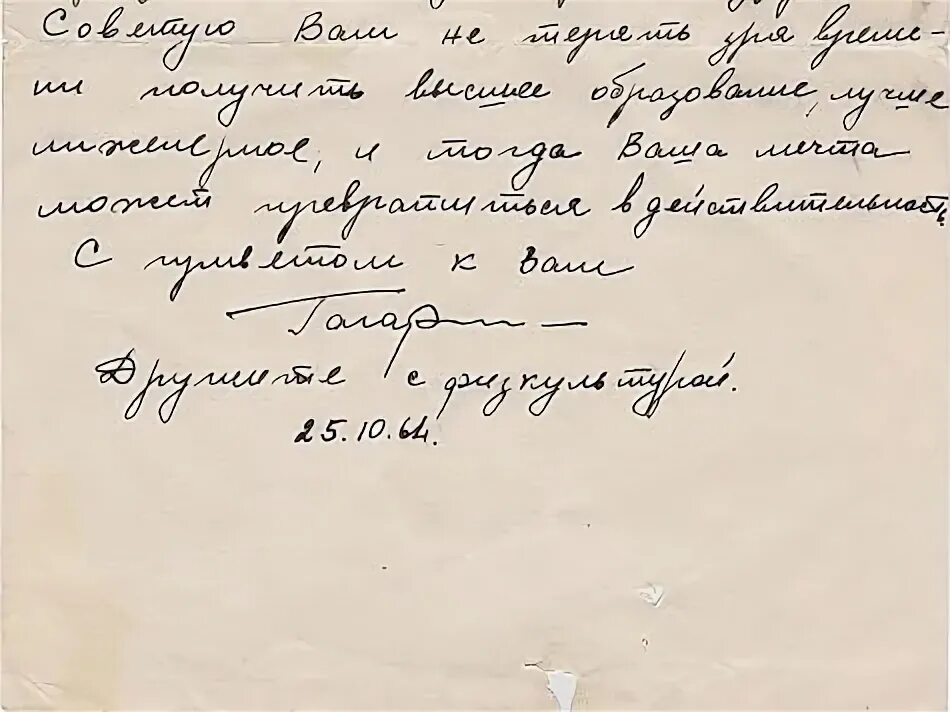 Советую Вам не терять зря време-
ни получить высшее образование, лучше
инженерное, и тогда Ваша мечта
может превратиться в действительность.
С приветом к Вам
Гагарин
Дружите с физкультурой.
25.10.64.